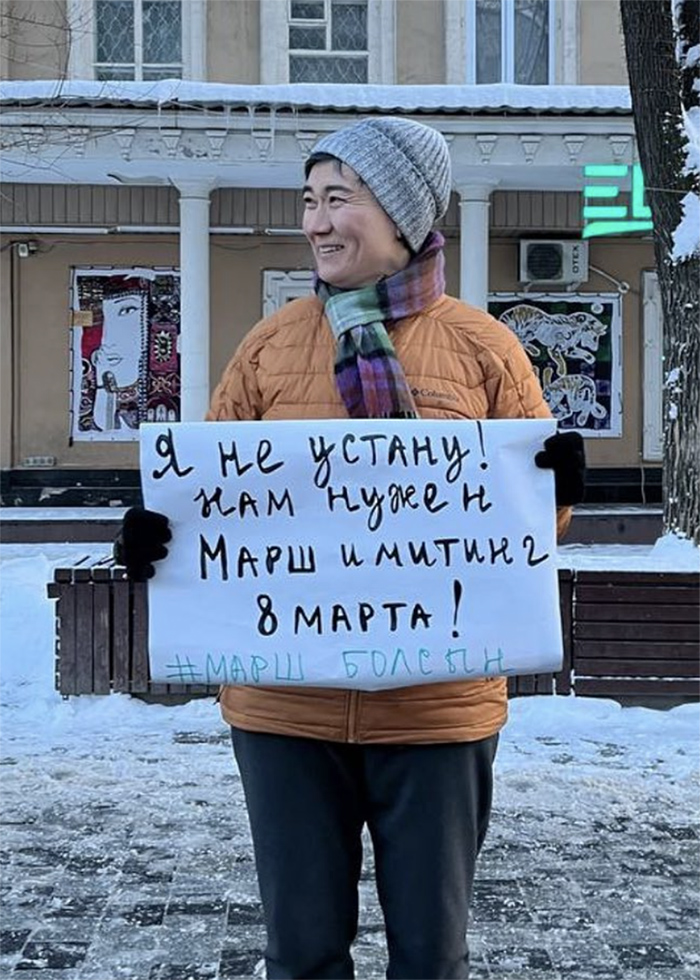 EL
ОТЕХ
Columbia
Я не устану!
нам нужен
Марш и митинг
8 марта!
#МАРШ БОЛСЫН